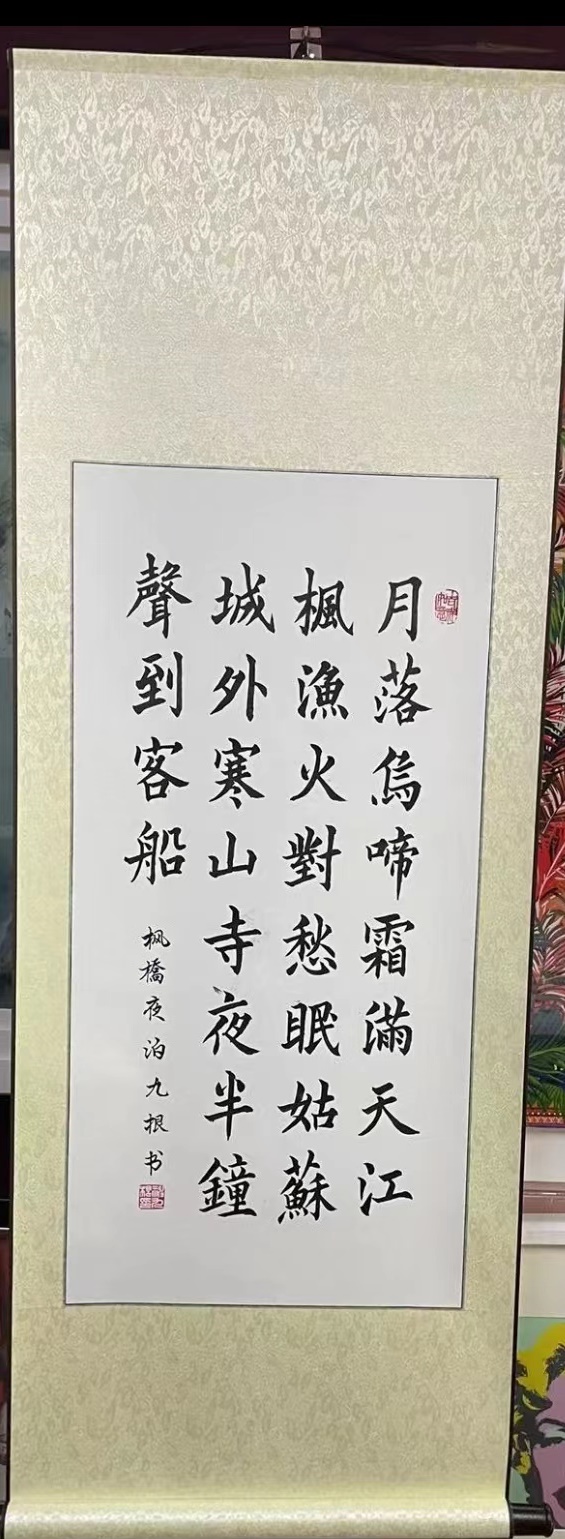 月落烏啼霜滿天江
楓漁火對愁眠姑蘇
城外寒山寺夜半鐘
聲到客船
枫橋夜泊九根书